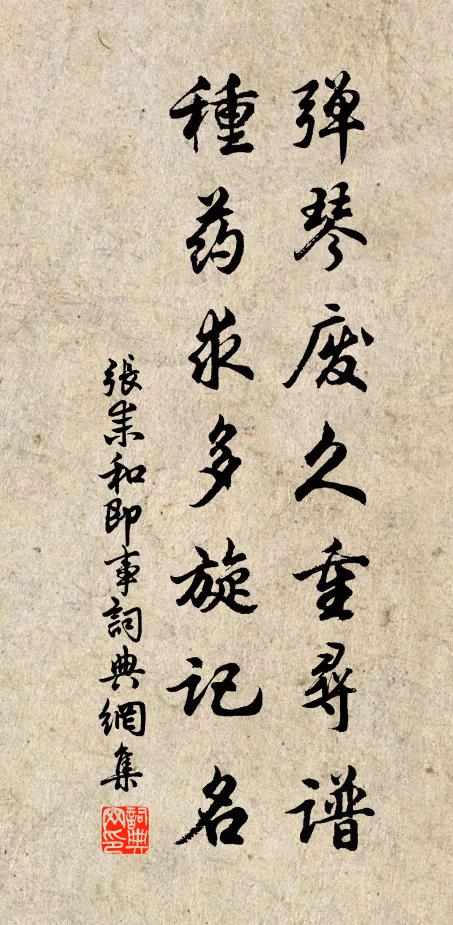 弹琴废久重寻谱
種药求多旋记名
張耒和即事詞典網集
詞典網印